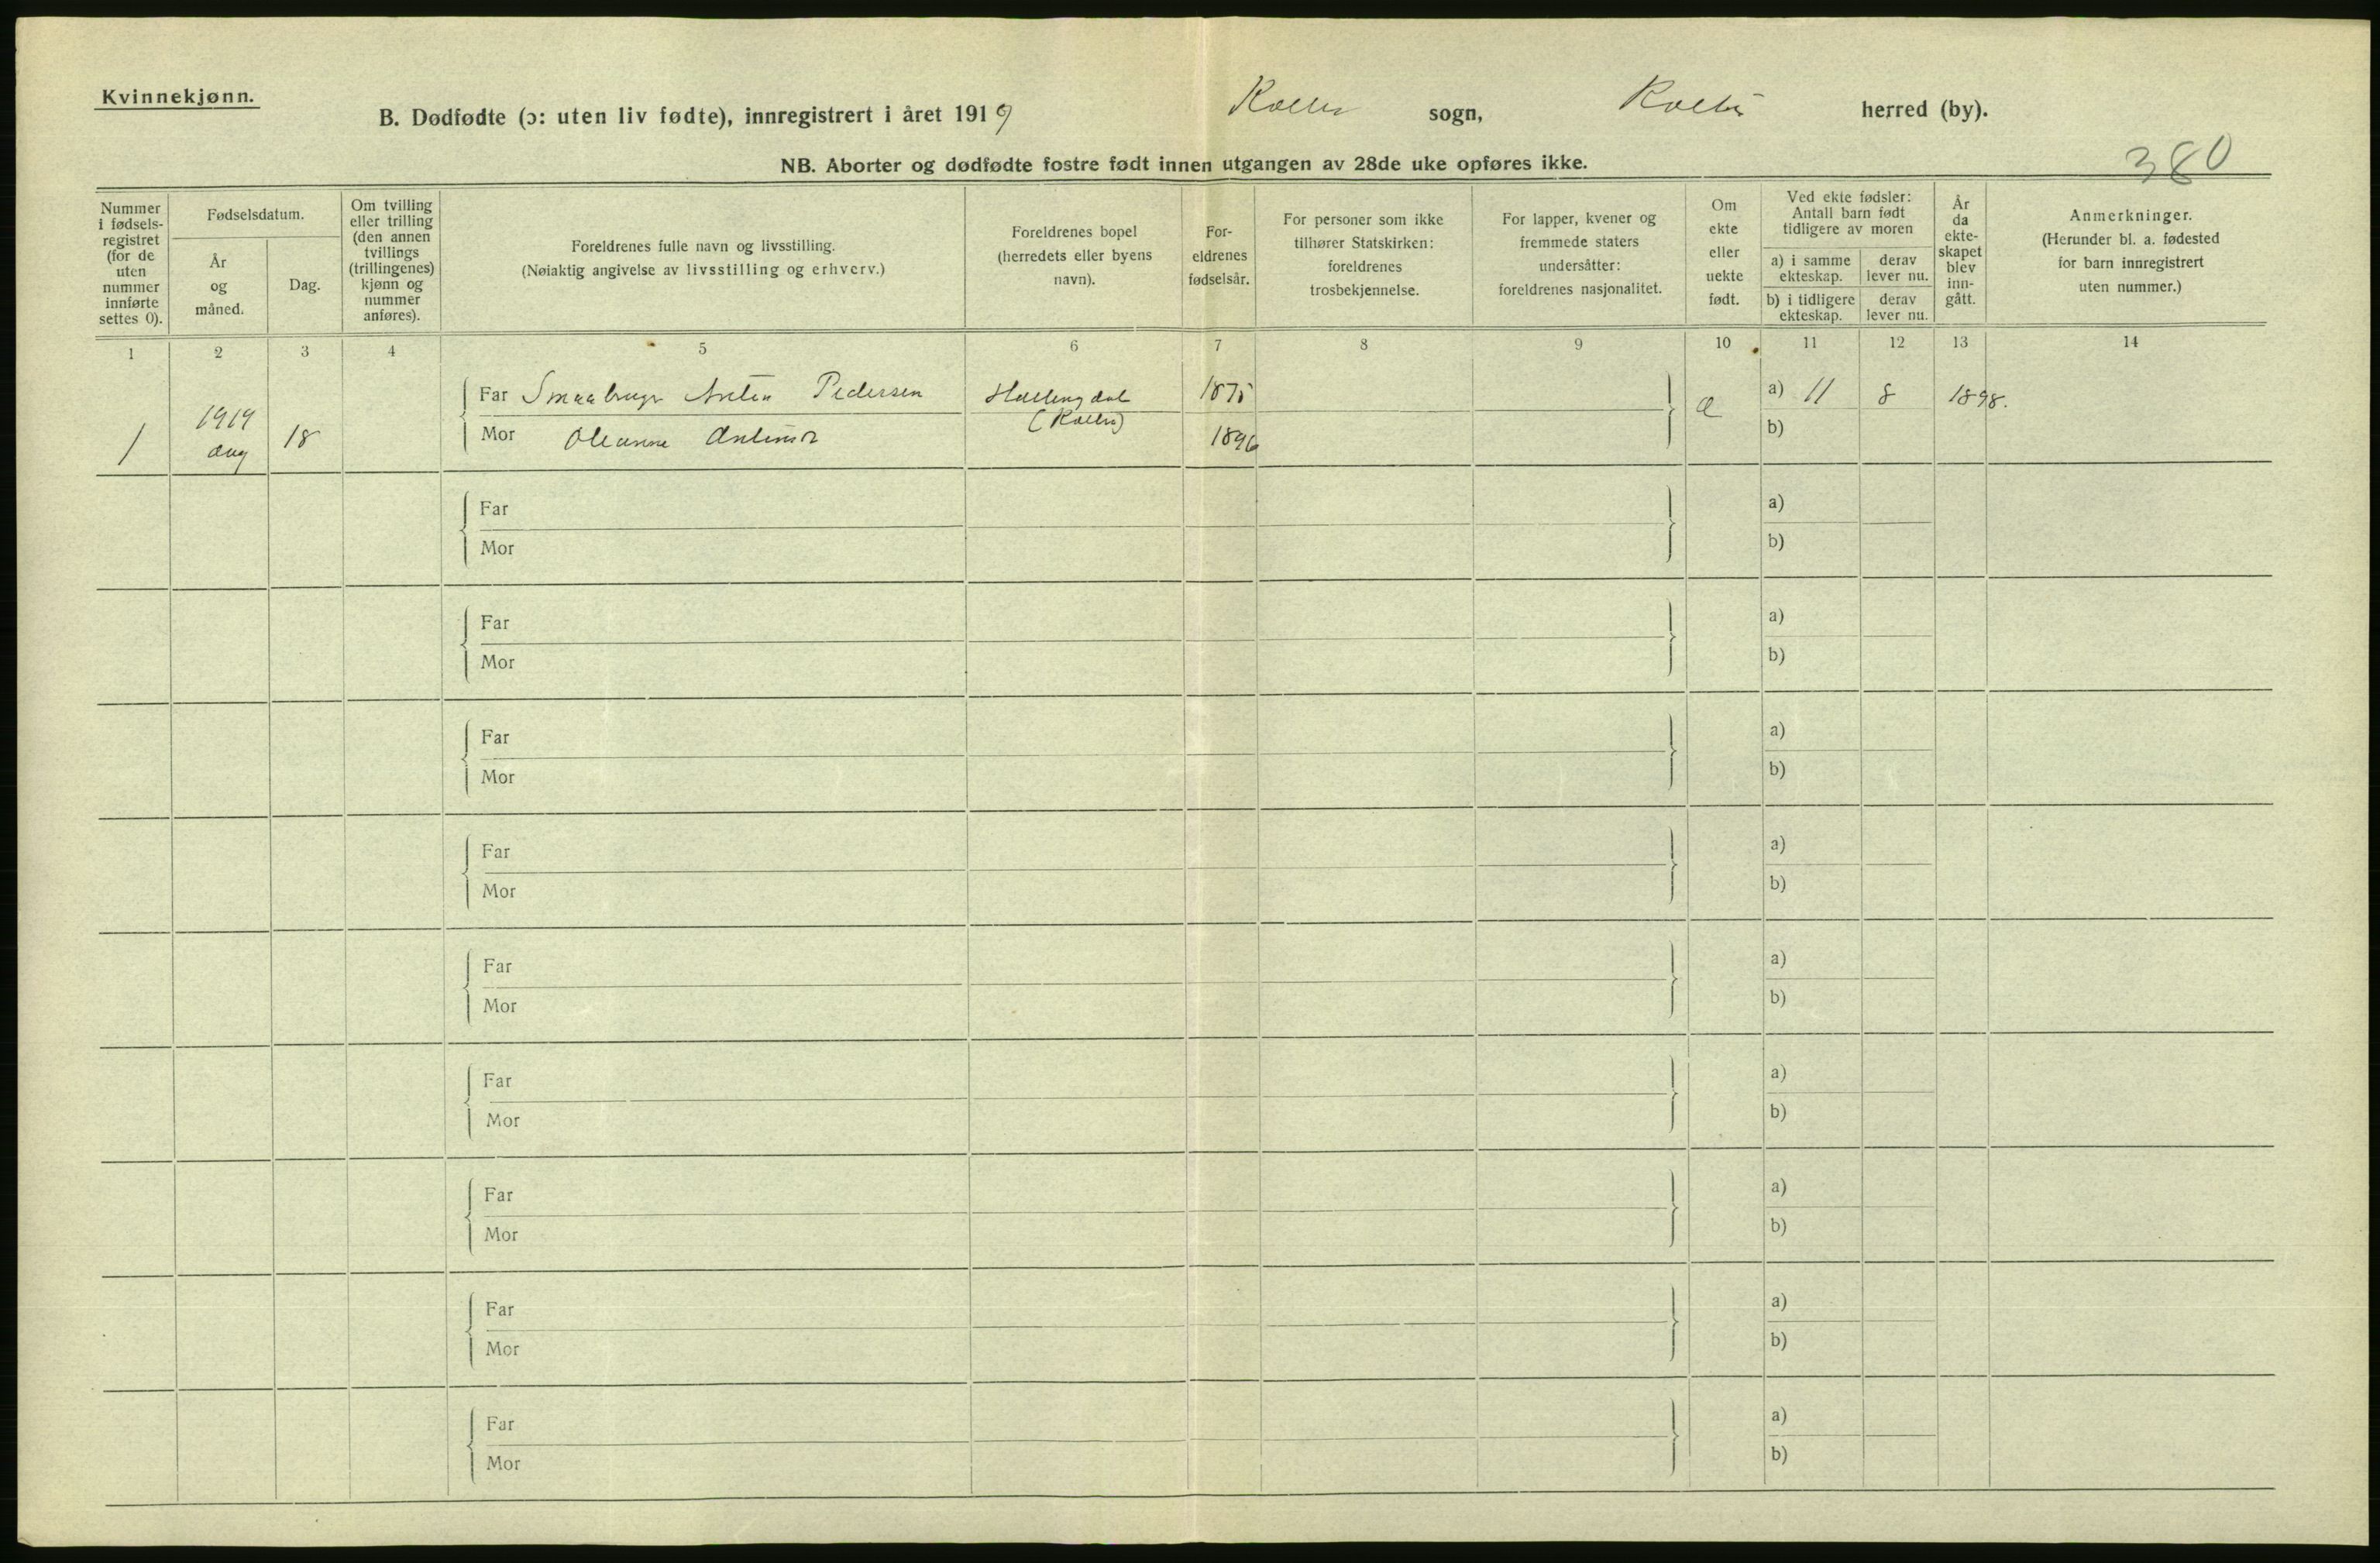 Kvinnekjønn.
B. Dødfødte (ɔ: uten liv fødte), innregistrert i året 1919 sogn, herred (by).
NB. Aborter og dødfødte fostre født innen utgangen av 28de uke opføres ikke.
380
Nummer
i fødsels-
registret
(for de
uten
nummer
innførte
settes 0).
Fødselsdatum.
År
og
måned.
Dag.
Om tvilling
eller trilling
(den annen
tvillings
(trillingenes)
kjønn og
nummer
anføres).
Foreldrenes fulle navn og livsstilling.
(Nøiaktig angivelse av livsstilling og erhverv.)
Foreldrenes bopel
(herredets eller byens
navn).
For-
eldrenes
fødselsår.
For personer som ikke
tilhører Statskirken:
foreldrenes
trosbekjennelse.
For lapper, kvener og
fremmede staters
undersåtter:
foreldrenes nasjonalitet.
Om
ekte
eller
uekte
født.
Ved ekte fødsler:
Antall barn født
tidligere av moren
a) i samme
ekteskap.
derav
lever nu.
b) i tidligere
ekteskap.
derav
lever nu.
År
da
ekte-
skapet
blev
inn-
gått.
Anmerkninger.
(Herunder bl. a. fødested
for barn innregistrert
uten nummer.)
1 2 3 4 5 6 7 8 9 10 11 12 13 14
1
1919
aug
18
Far Pedersen
1875
Mor
1896
a) 11 8 1898.
b)
Far
Mor
a)
b)
Far
Mor
a)
b)
Far
Mor
a)
b)
Far
Mor
a)
b)
Far
Mor
a)
b)
Far
Mor
a)
b)
Far
Mor
a)
b)
Far
Mor
a)
b)
Far
Mor
a)
b)